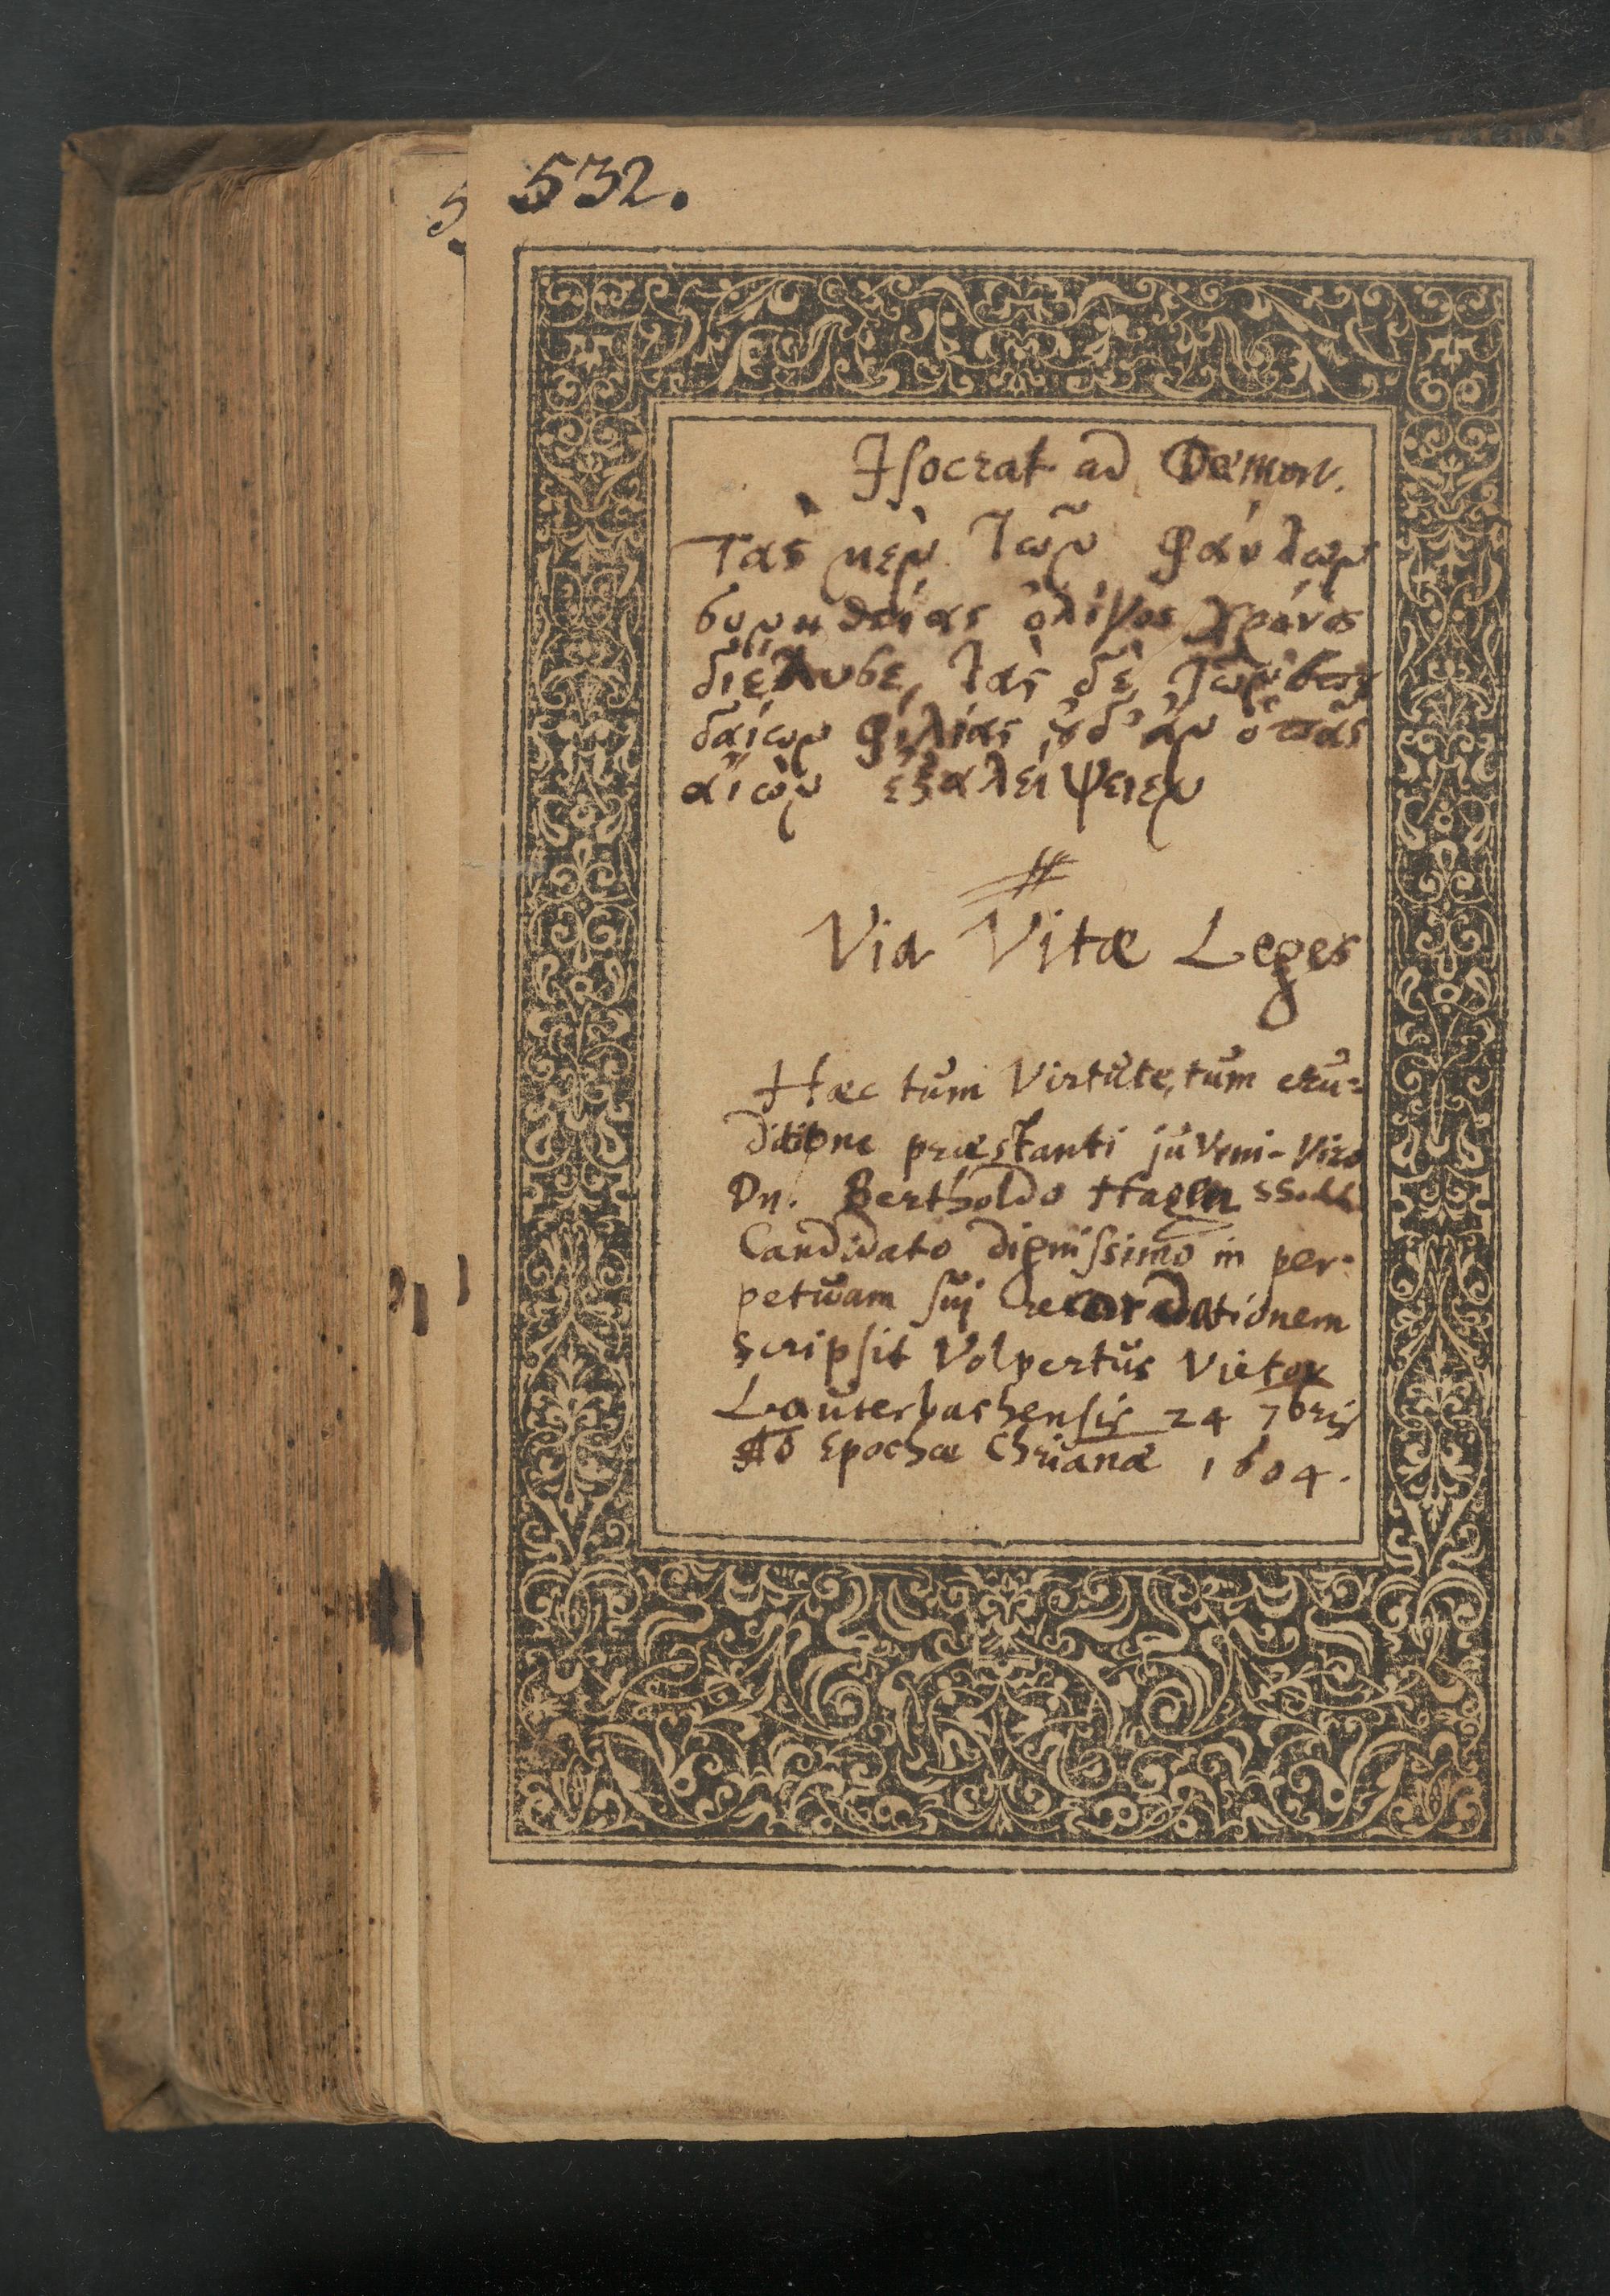 532.
5
Isocrat ad Dæmon.
Τὰς μὲν τῶν φάυλων
συνηθείας ὀλίγος χρόνος
διέλυσε, τὰς δὲ τῶν σπου
δαίων φιλίας ȣδ' ἂν ὁ πᾶς
αἰὼν ἐξαλείψειεν
Via Vitæ Leges
Hæc tum Virtute, tum eru=
ditione præstanti juveni-Viro
Dn. Bertholdo Hagen
Candidato dignissimo in per-
petuam sui recordationem
scripsit Volpertus Vietor
Lauterbachensis 24 7bris
Epochæ Chrianæ 1604.